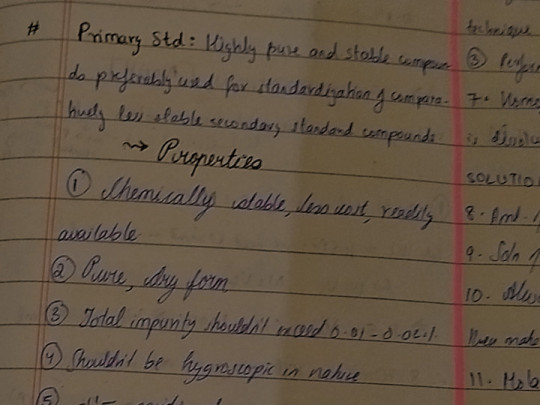 # Primary Std: Highly pure and stable compoun-
ds preferably used for standardization of compara-
tively less stable secondary standard compounds.
→ Properties
① Chemically stable, less cost, readily
available.
② Pure, dry form
③ Total impurity shouldn't exceed 0.01 - 0.02%.
④ Shouldn't be hygroscopic in nature
⑤
technique
③ Perfor
7.
is dissolv
SOLUTIO
8. Amt.
9. Soln
10.
11. Mola